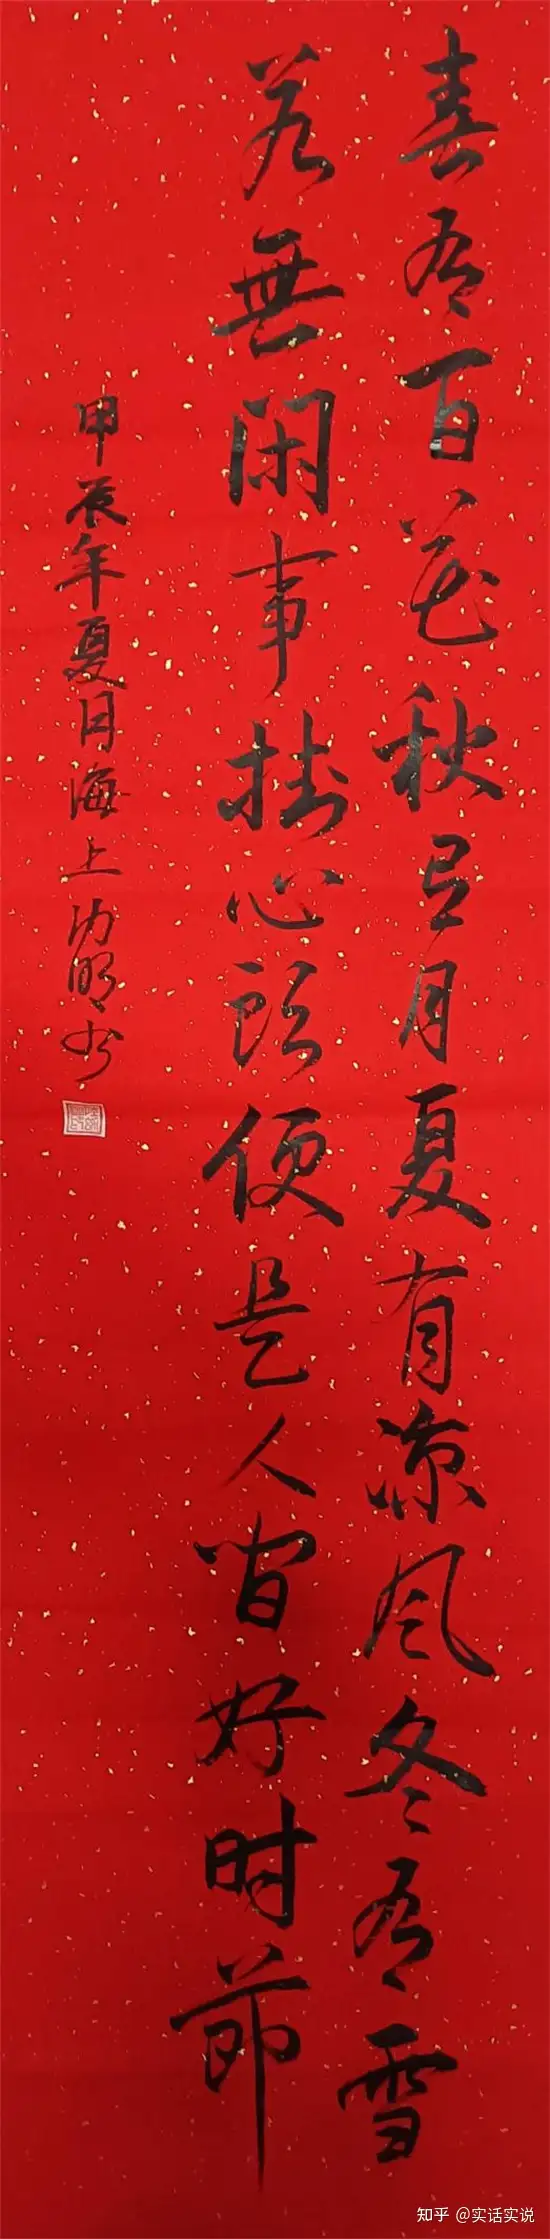 春有百花秋有月夏有凉风冬有雪
若無闲事掛心頭便是人间好时節
甲辰年夏月海上明书
知乎 @实话实说